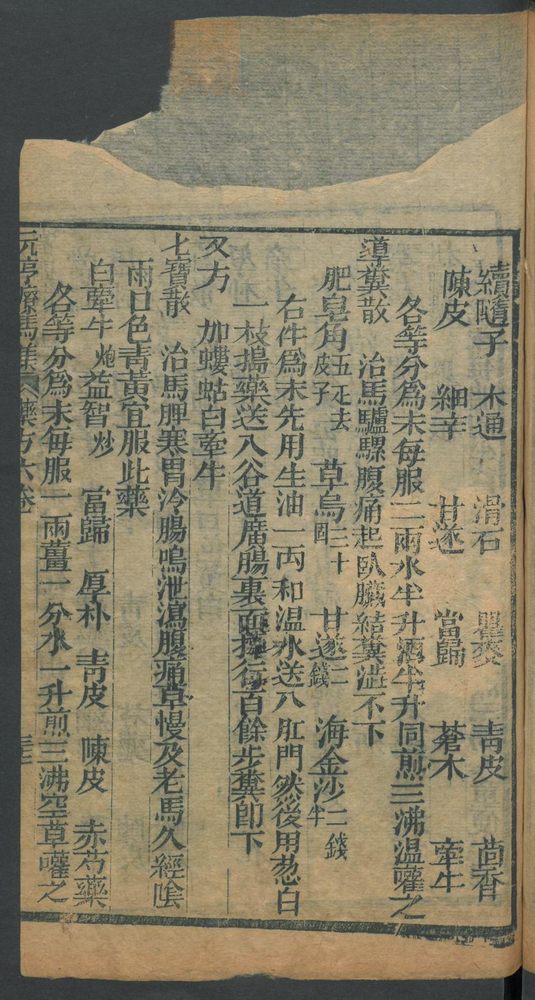 續隨子 木通 滑石 瞿麥 靑皮 茴香
陳皮 細辛 甘遂 當歸 蒼朮 牽牛
各等分爲末每服二兩水半升酒半升同煎三沸溫嚾之
導糞散 治馬驢騾腹痛起臥臟結糞澁不下
肥皂角五疋去皮子 草烏三十箇 甘遂二錢 海金沙二錢半
右件爲末先用生油一丙和温水送入肛門然後用葱白
一枝搗藥送入谷道廣腸裏面 行百餘步糞卽下
又方 加螻蛄白牽牛
七寶散 治馬脾寒胃冷腸鳴泄瀉腹痛草慢及老馬久經陰
雨口色靑黃宜服此藥
白牽牛炮 益智炒 當歸 厚朴 靑皮 陳皮 赤芍藥
各等分爲末每服一兩薑一分水一升煎三沸空草嚾之
元亨療馬集 藥方六卷